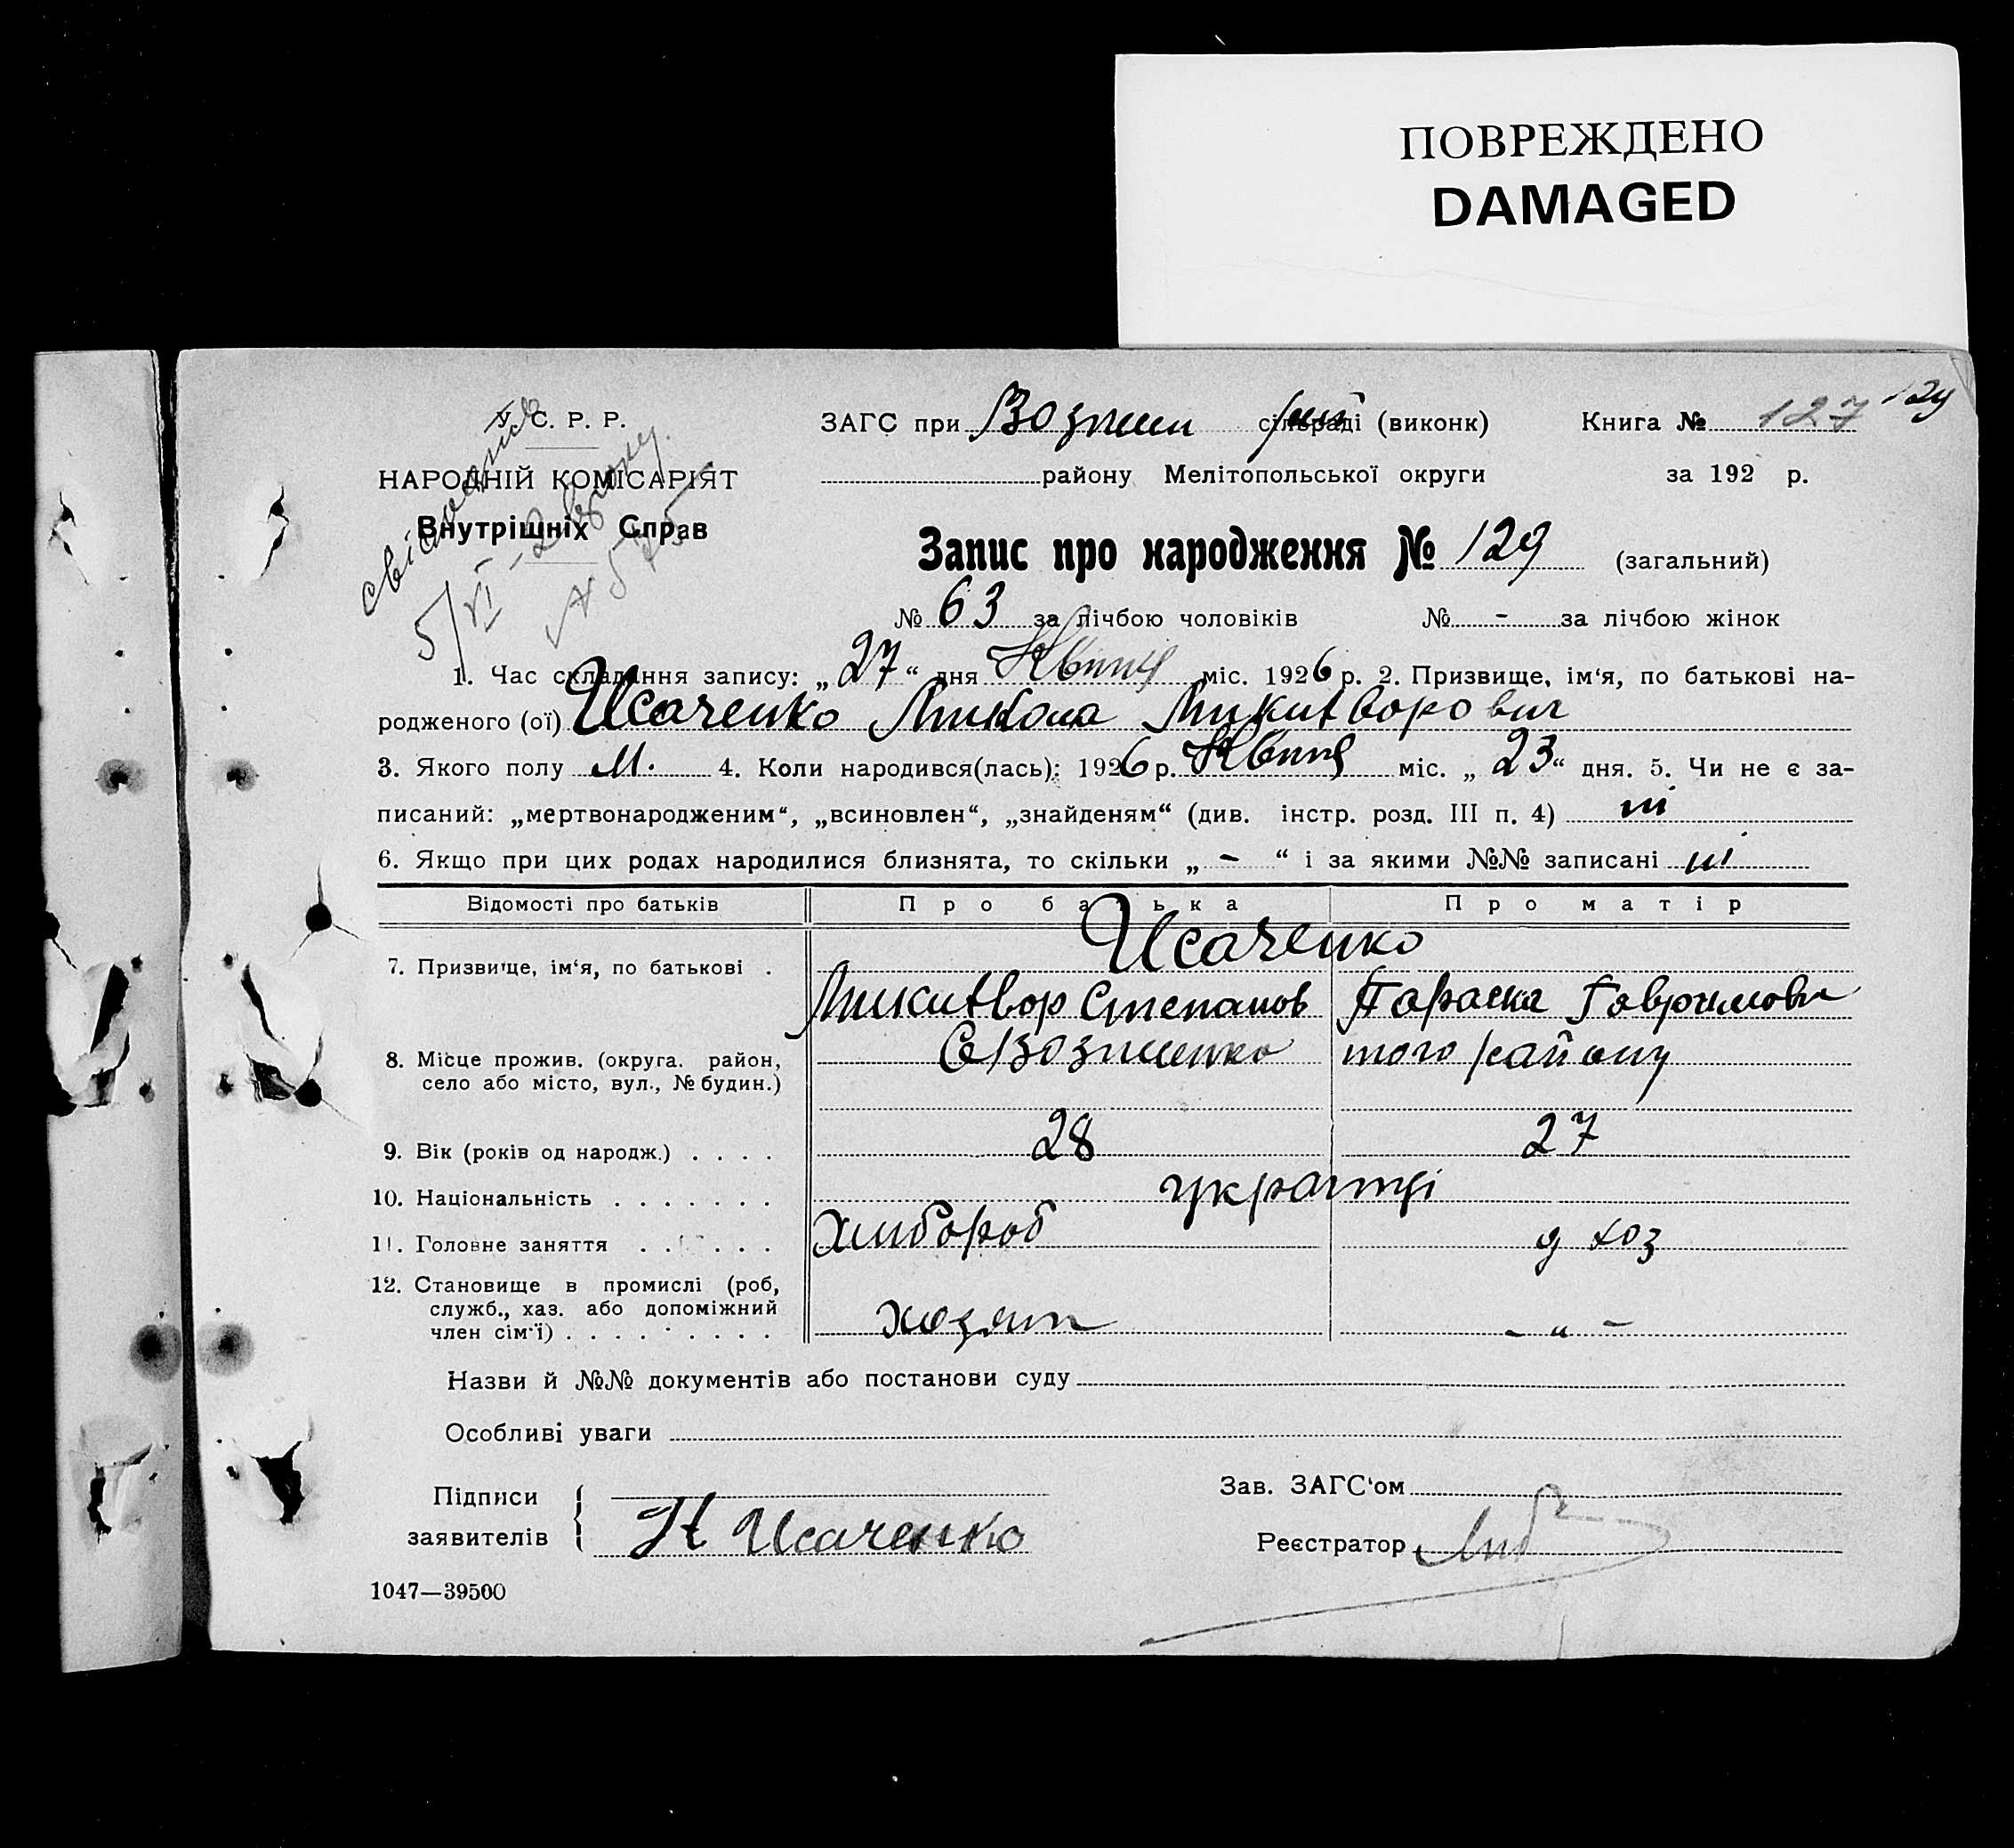 ПОВРЕЖДЕНО
DAMAGED
У. С. Р. Р.
НАРОДНІЙ КОМІСАРІЯТ
Внутрішніх Справ
5/VI
ЗАГС при сільраді (виконк)
Книга № 127 129
району Мелітопольської округи за 192 р.
Запис про народження № 129 (загальний)
№ 63 за лічбою чоловіків № - за лічбою жінок
1. Час складання запису: „27“ дня Квітця міс. 1926 р. 2. Призвище, ім‘я, по батькові на-
родженого (ої) Исаченко Микола Микитворович
3. Якого полу М. 4. Коли народився(лась): 1926 р. Квітця міс. „23“ дня. 5. Чи не є за-
писаний: „мертвонародженим“, „всиновлен“, „знайденям“ (див. інстр. розд. III п. 4) ні
6. Якщо при цих родах народилися близнята, то скільки „ - “ і за якими №№ записані ні
Відомості про батьків Про батька Про матір
7. Призвище, ім‘я, по батькові . Исаченко
Микитвор Степанов Параска Гаврилови
8. Місце прожив. (округа. район, село або місто, вул., № будин.) того району
9. Вік (років од народж.) . . . . 28 27
10. Національність . . . . . . . українці
11. Головне заняття . . . . . . Хлібороб д хоз
12. Становище в промислі (роб, служб., хаз. або допоміжний член сім‘ї) . . . . . . . . . . хозяин - „ -
Назви й №№ документів або постанови суду
Особливі уваги
Підписи Зав. ЗАГС‘ом
заявителів Н Исаченко Реєстратор
1047—39500